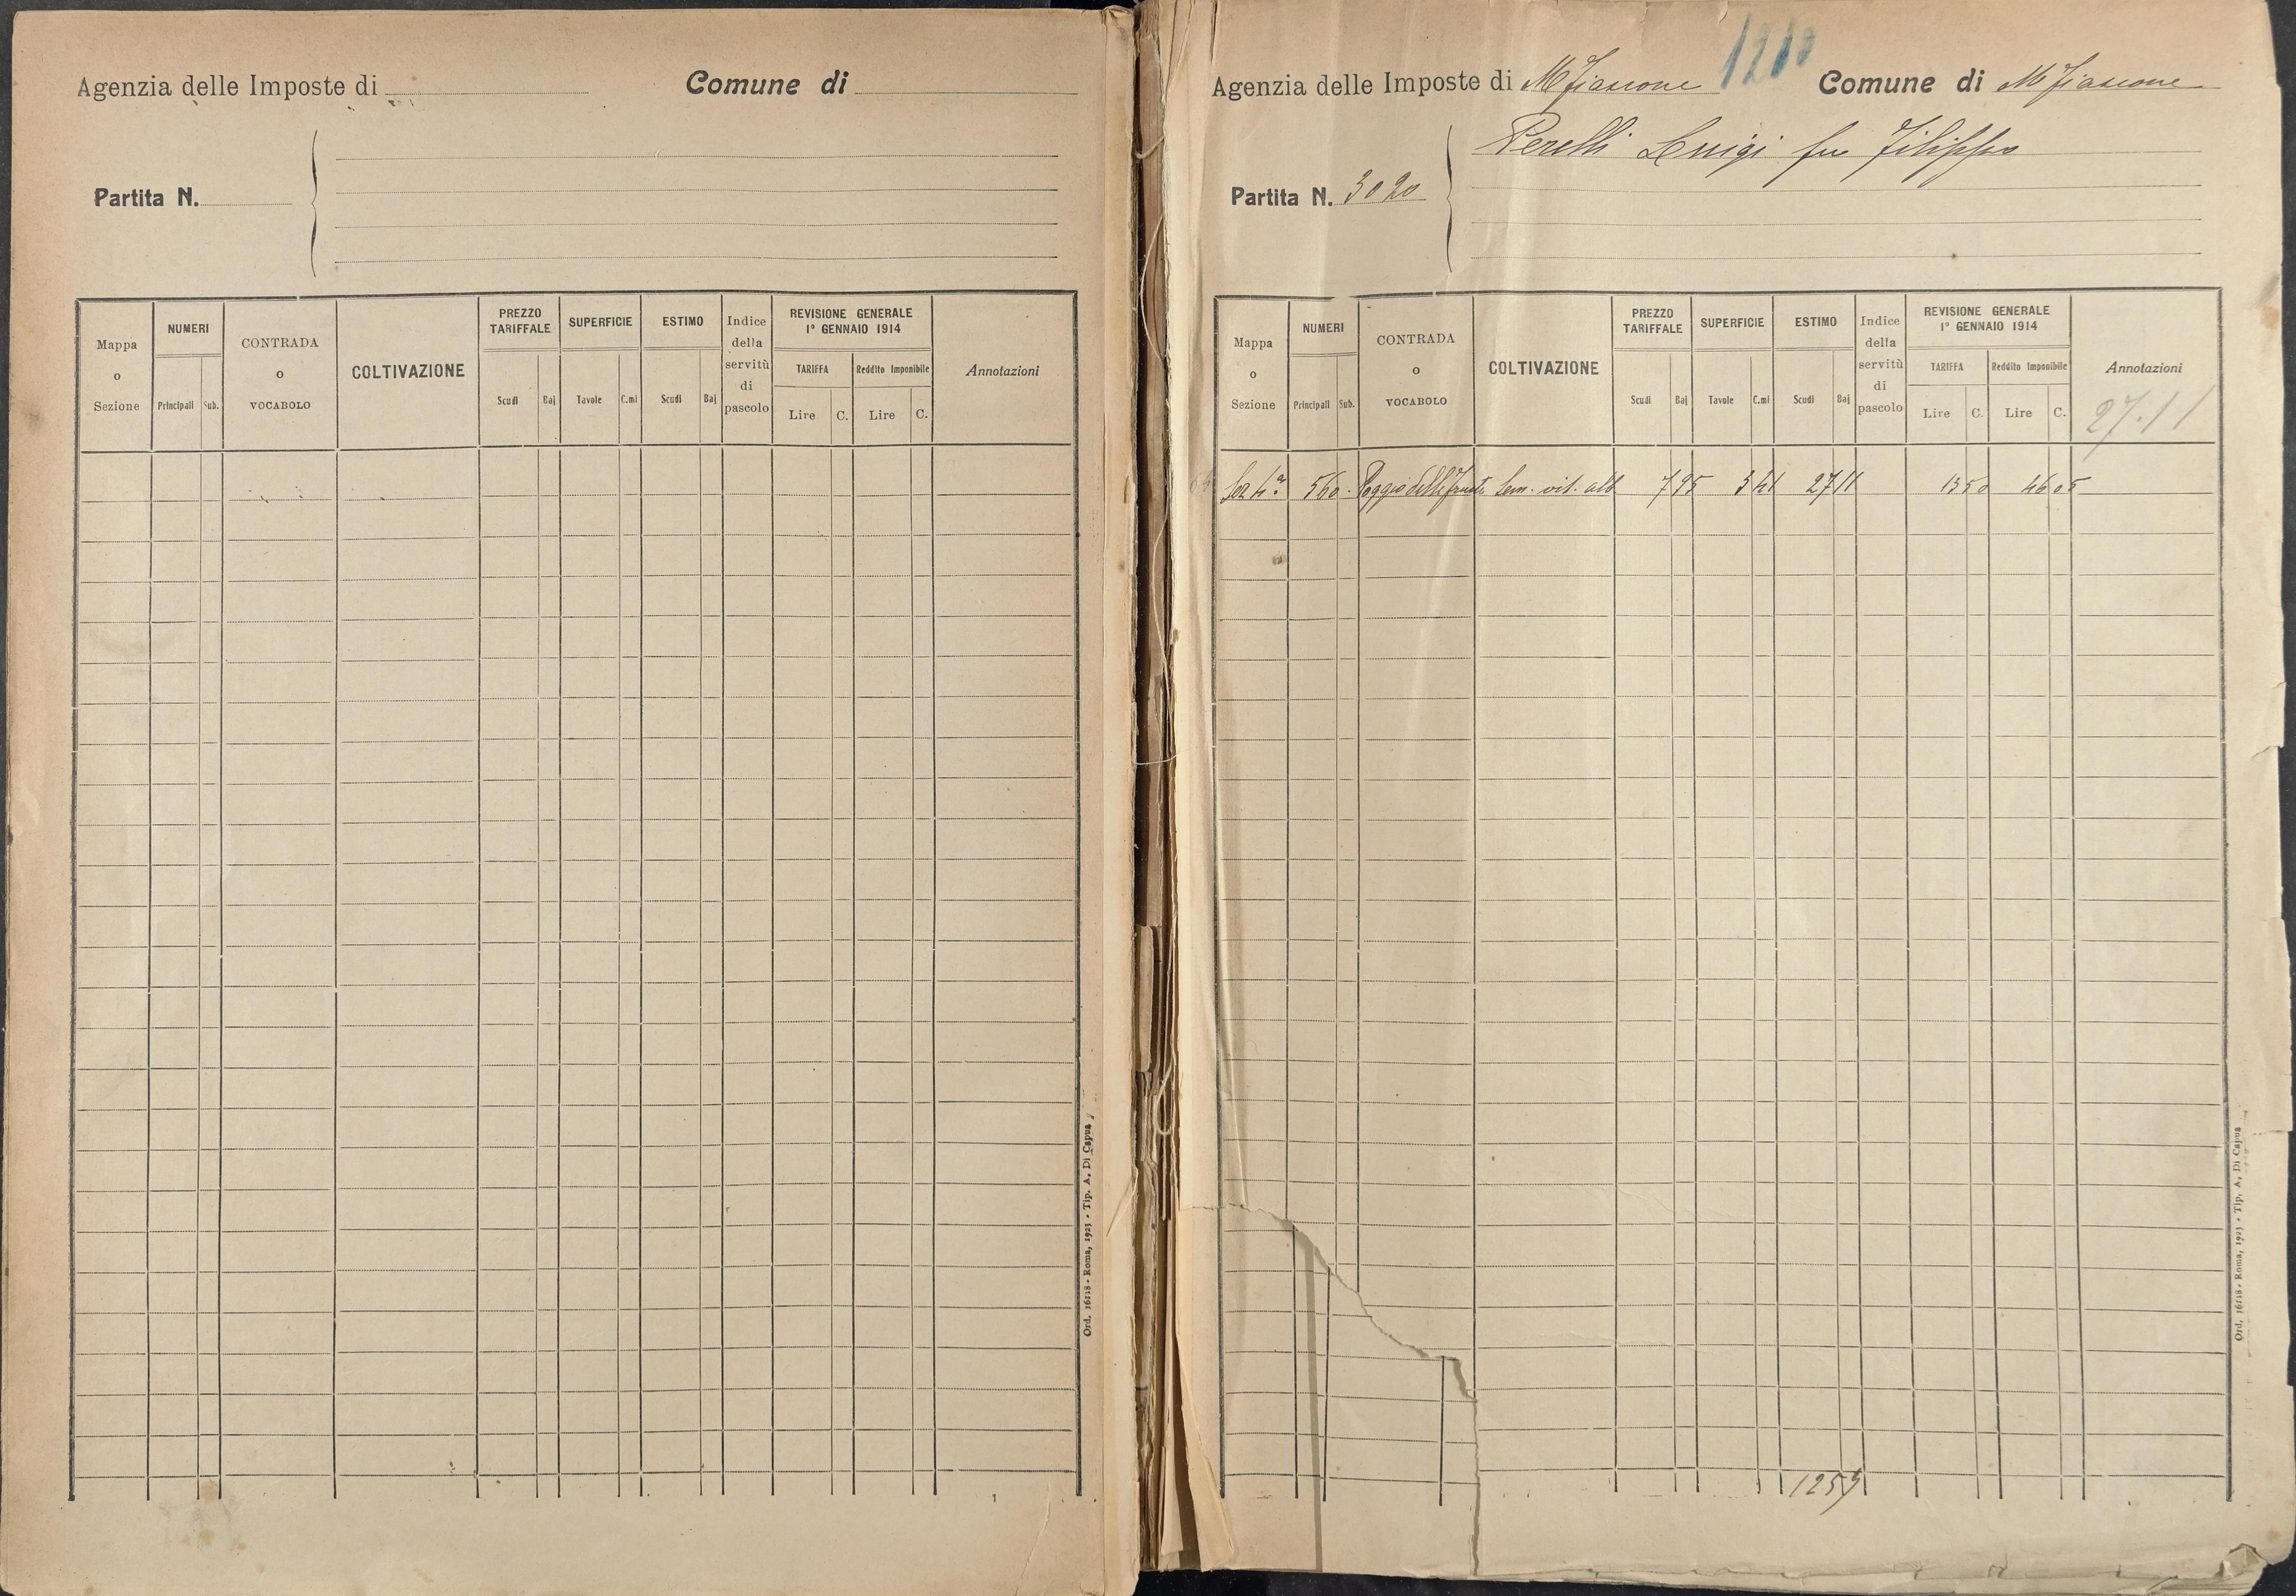 Agenzia delle Imposte di Comune di
Partita N.
Mappa o Sezione NUMERI Principali Sub. CONTRADA o VOCABOLO COLTIVAZIONE PREZZO TARIFFALE Scudi Baj SUPERFICIE Tavole C.mi ESTIMO Scudi Baj Indice della servitù di pascolo REVISIONE GENERALE 1° GENNAIO 1914 TARIFFA Lire C. Reddito Imponibile Lire C. Annotazioni
Ord. 16118 - Roma, 1923 - Tip. A. Di Capua
Agenzia delle Imposte di M Fiascone Comune di M Fiascone
Perelli Luigi fu Filippo
Partita N. 3020
Mappa o Sezione NUMERI Principali Sub. CONTRADA o VOCABOLO COLTIVAZIONE PREZZO TARIFFALE Scudi Baj SUPERFICIE Tavole C.mi ESTIMO Scudi Baj Indice della servitù di pascolo REVISIONE GENERALE 1° GENNAIO 1914 TARIFFA Lire C. Reddito Imponibile Lire C. Annotazioni
27.11
Sez 4ª 560 Poggio delle Sem. vit. alb 7 95 3 41 27 11 13 50 46 05
Ord. 16118 - Roma, 1923 - Tip. A. Di Capua
1259